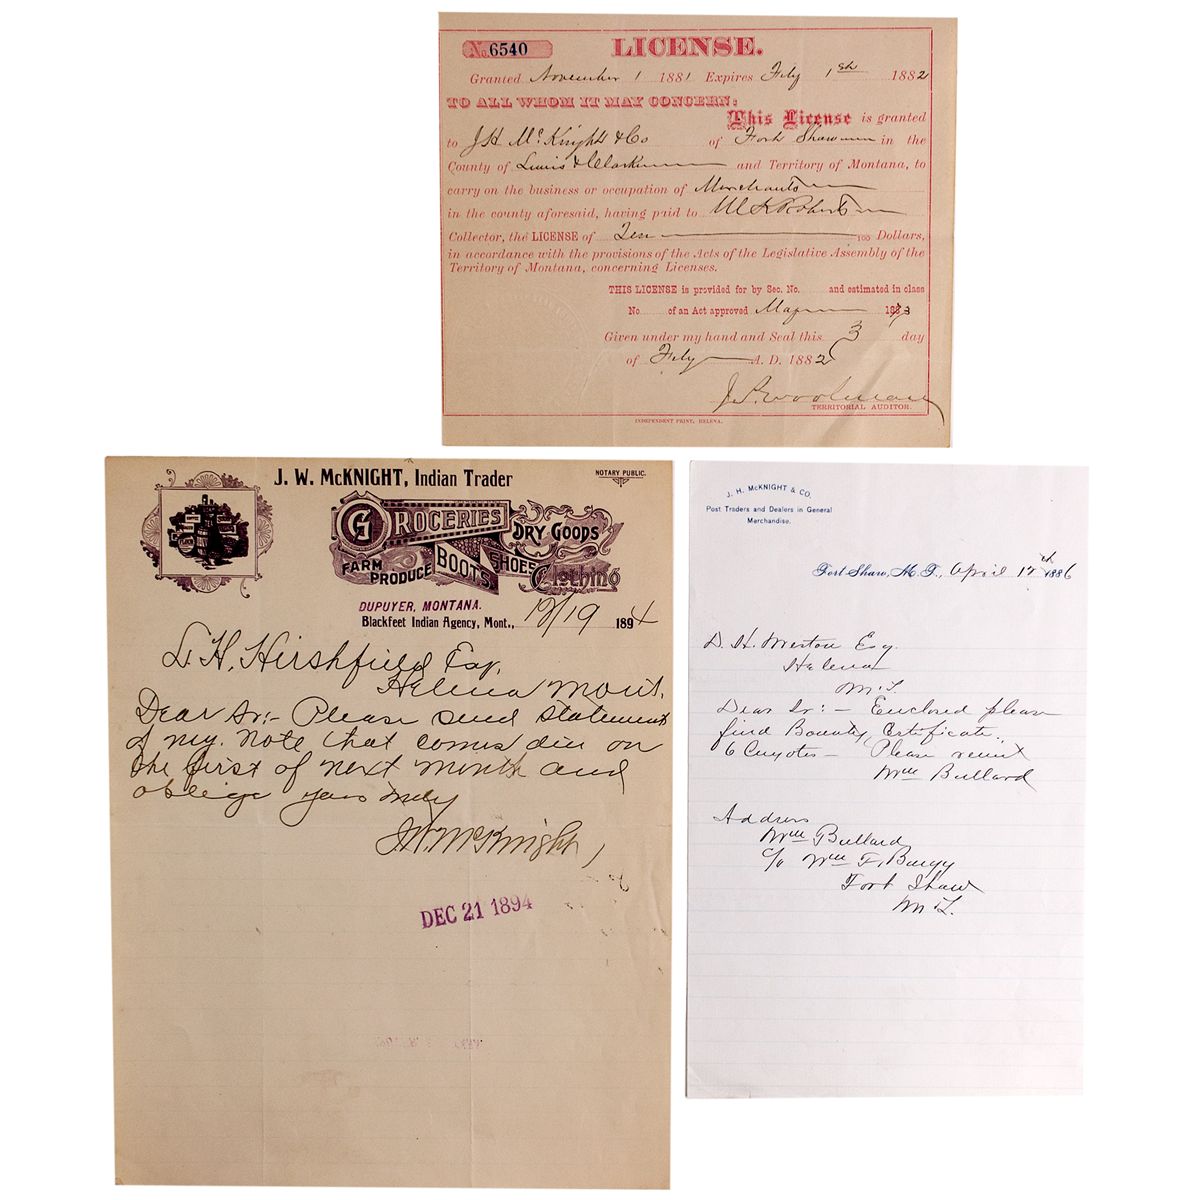 No. 6540
LICENSE.
Granted November 1 1881 Expires Feby 1st 1882
TO ALL WHOM IT MAY CONCERN:
This License is granted
to J H McKnight & Co of Fort Shaw in the
County of Lewis & Clarke and Territory of Montana, to
carry on the business or occupation of Merchants
in the county aforesaid, having paid to W K Roberts
Collector, the LICENSE of Ten 100 Dollars,
in accordance with the provisions of the Acts of the Legislative Assembly of the
Territory of Montana, concerning Licenses.
THIS LICENSE is provided for by Sec. No. and estimated in class
No. of an Act approved 187
Given under my hand and Seal this 3 day
of Feby A. D. 1882
J. P. Woolman
TERRITORIAL AUDITOR.
INDEPENDENT PRINT, HELENA.
J. W. McKNIGHT, Indian Trader
NOTARY PUBLIC.
GROCERIES
DRY GOODS
FARM PRODUCE
BOOTS
SHOES
Clothing
DUPUYER, MONTANA.
Blackfeet Indian Agency, Mont., 12/19 1894
L. H. Hirshfield Esq.
Helena Mont.
Dear Sr:- Please send statement
of my note that comes due on
the first of next month and
oblige yours truly
J. W. McKnight
DEC 21 1894
J. H. McKNIGHT & CO.
Post Traders and Dealers in General
Merchandise.
Fort Shaw, M. T., April 12th 1886
D. H. Weston Esq.
Helena
M.T.
Dear Sr:- Enclosed please
find Bounty Certificate.
6 Cuyotes - Please remit
Wm Bullard
Address
Wm Bullard
c/o Wm F. Bargy
Fort Shaw
M T.